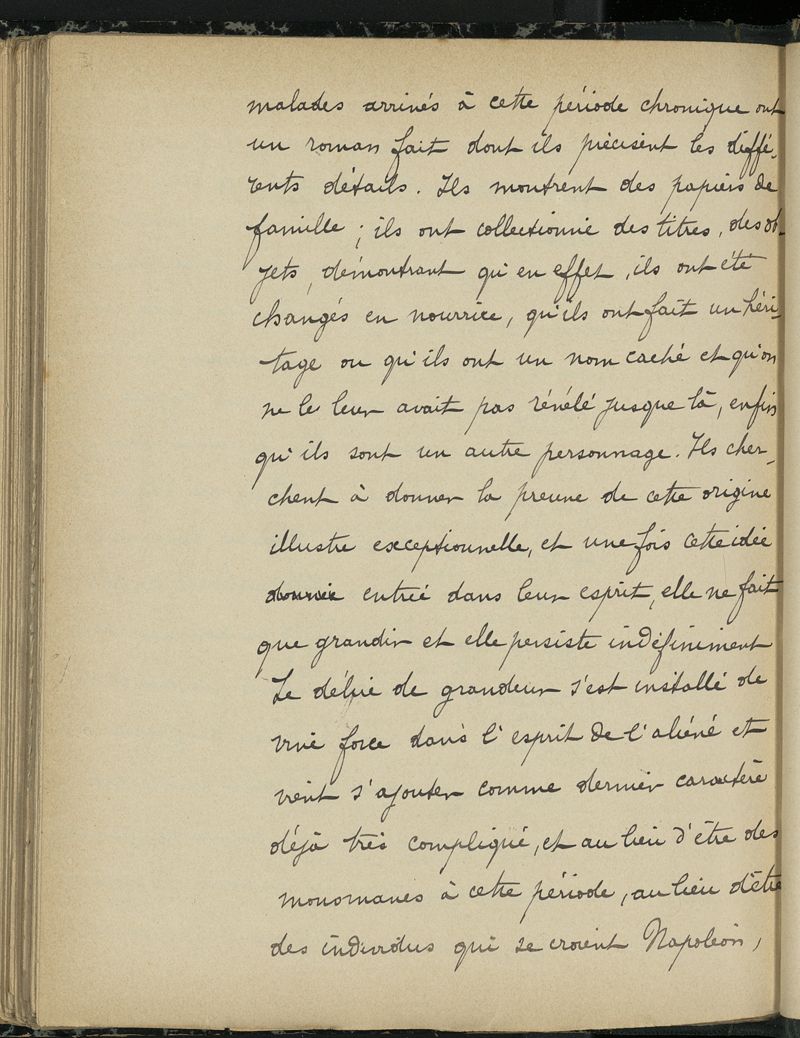 malades arrivés à cette période chronique ont
un roman fait dont ils précisent les diffé-
rents détails. Ils montrent des papiers de
famille ; ils ont collectionné des titres, des ob-
jets, démontrant qu'en effet, ils ont été
changés en nourrice, qu'ils ont fait un héri-
tage ou qu'ils ont un nom caché et qu'on
ne le leur avait pas révélé jusque là, enfin
qu'ils sont un autre personnage. Ils cher-
chent à donner la preuve de cette origine
illustre exceptionnelle, et une fois cette idée
entrée dans leur esprit, elle ne fait
que grandir et elle persiste indéfiniment
Le délire de grandeur s'est installé de
vive force dans l'esprit de l'aliéné et
vient s'ajouter comme dernier caractère
déjà très compliqué, et au lieu d'être des
monomanes à cette période, au lieu d'être
des individus qui se croient Napoléon,